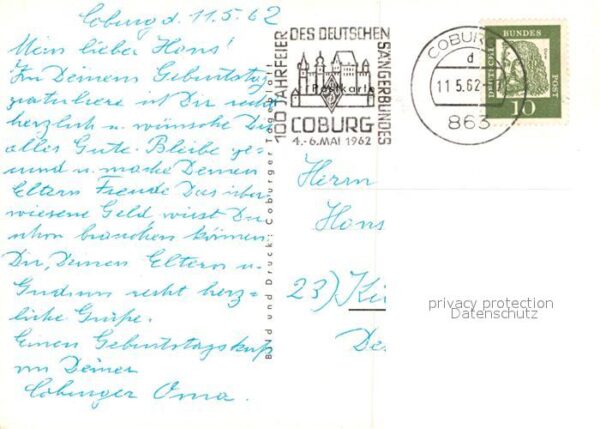 Coburg d. 11.5.62
Mein lieber Hans!
Zu Deinem Geburtstag
gratuliere ich Dir recht
herzlich u. wünsche Dir
alles Gute. Bleibe ge-
sund u. mache Deinen
Eltern Freude Das über-
wiesene Geld, wirst Du
schon brauchen können.
Dir, Deinen Eltern u.
Gudrun recht herz-
liche Grüße.
Einen Geburtstagskuß
von Deiner
Coburger Oma.
Bild und Druck: Coburger Tageblatt
Postkarte
100 JAHRFEIER
DES DEUTSCHEN
SÄNGERBUNDES
COBURG
4.-6. MAI 1962
COBURG
d
11.5.62
863
DEUTSCHE
BUNDES
POST
10
Herrn
Hans
23)
privacy protection
Datenschutz